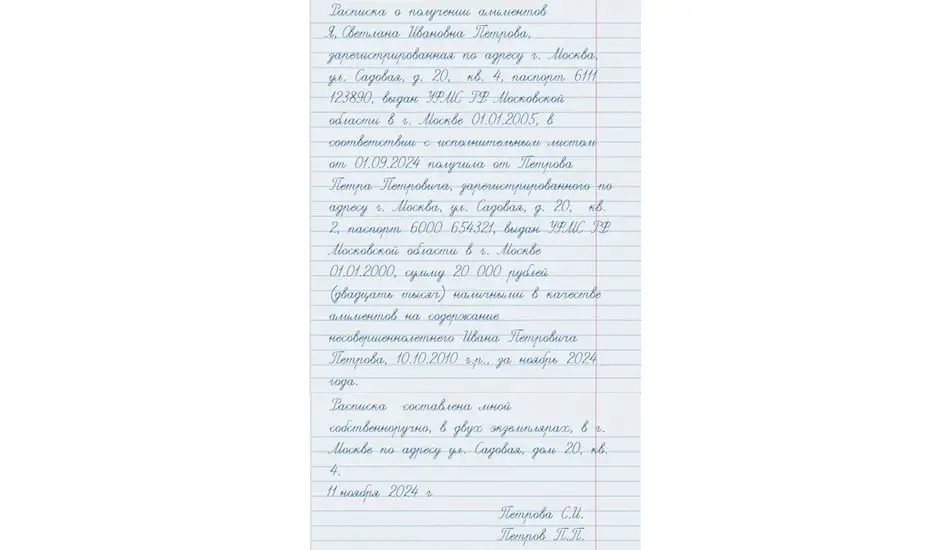 Расписка о получении алиментов
Я, Светлана Ивановна Петрова,
зарегистрированная по адресу г. Москва,
ул. Садовая, д. 20, кв. 4, паспорт 6111
123890, выдан УФМС РФ Московской
области в г. Москве 01.01.2005, в
соответствии с исполнительным листом
от 01.09.2024 получила от Петрова
Петра Петровича, зарегистрированного по
адресу г. Москва, ул. Садовая, д. 20, кв.
2, паспорт 6000 654321, выдан УФМС РФ
Московской области в г. Москве
01.01.2000, сумму 20 000 рублей
(двадцать тысяч) наличными в качестве
алиментов на содержание
несовершеннолетнего Ивана Петровича
Петрова, 10.10.2010 г.р., за ноябрь 2024
года.
Расписка составлена мной
собственноручно, в двух экземплярах, в г.
Москве по адресу ул. Садовая, дом 20, кв.
4.
11 ноября 2024 г
Петрова С.И.
Петров П.П.